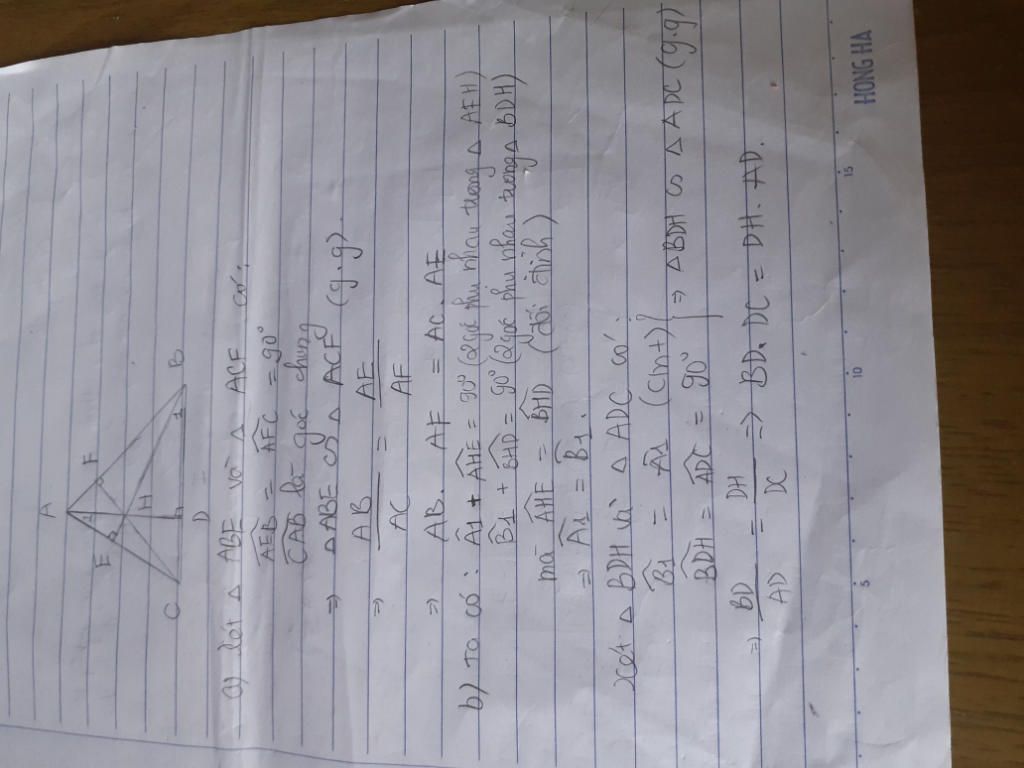 A
E
F
H
C
D
B
a) Xét △ ABE và △ ACF có:
AEB = AFC = 90°
CAB là góc chung
⇒ △ABE ∽ △ ACF (g.g)
⇒ AB/AC = AE/AF
⇒ AB. AF = AC. AE
b) Ta có: A1 + AHE = 90° (2 góc phụ nhau trong △ AEH)
B1 + BHD = 90° (2 góc phụ nhau trong △ BDH)
mà AHE = BHD (đối đỉnh)
⇒ A1 = B1.
xét △ BDH và △ ADC có:
B1 = A1 (Cmt)
BDH = ADC = 90° } ⇒ △BDH ∽ △ ADC (g.g)
⇒ BD/AD = DH/DC ⇒ BD. DC = DH. AD.
5 10 15
HONG HA